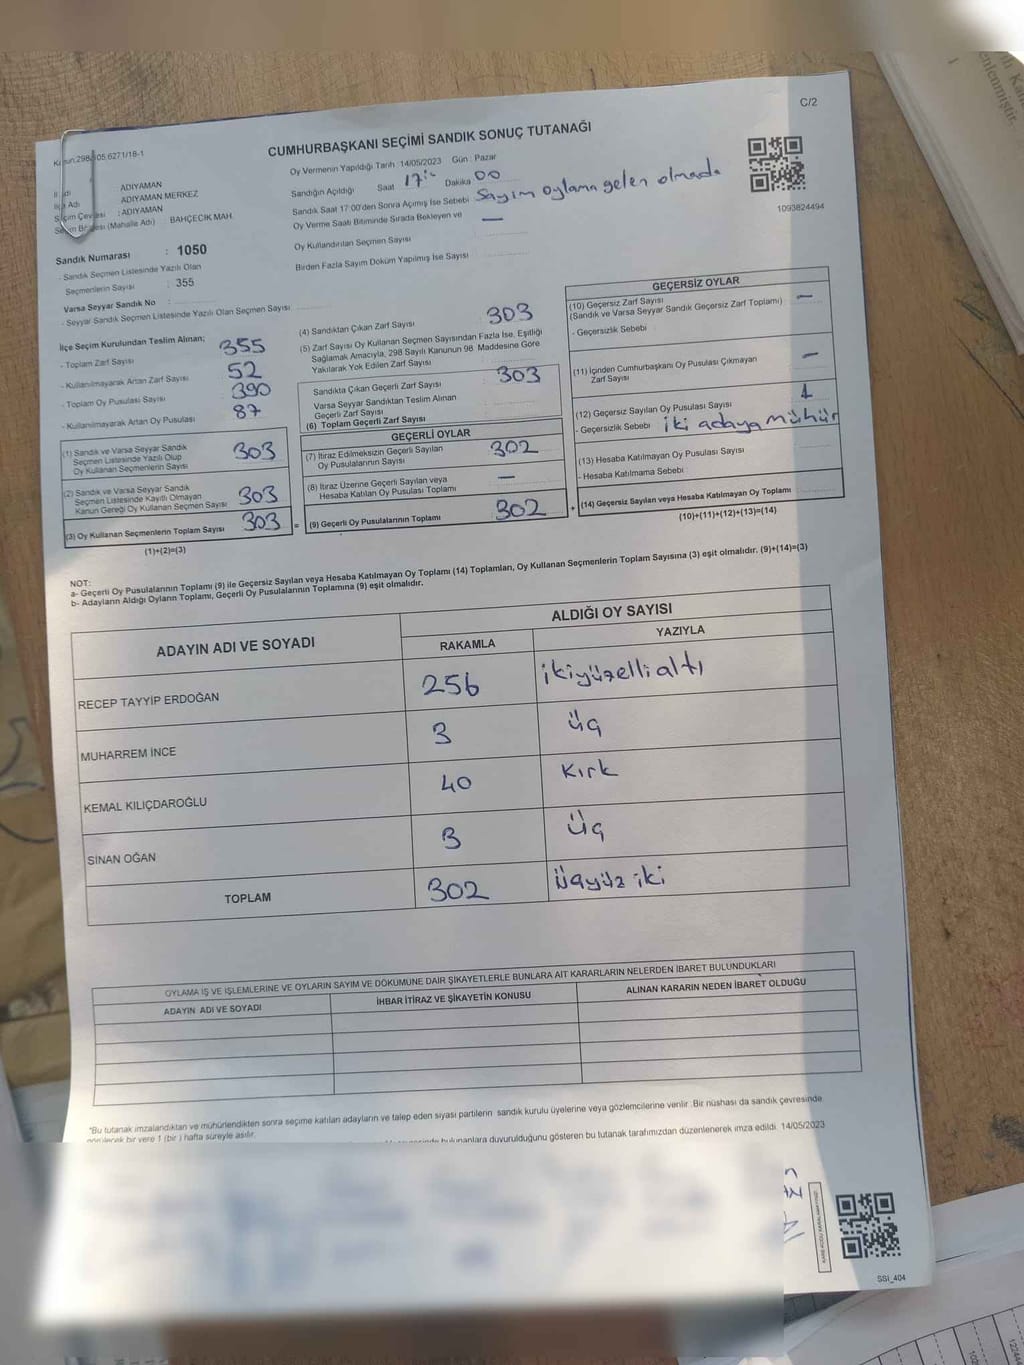 C/2
CUMHURBAŞKANI SEÇİMİ SANDIK SONUÇ TUTANAĞI
Oy Vermenin Yapıldığı Tarih :14/05/2023 Gün : Pazar
ADIYAMAN
ADIYAMAN MERKEZ
: ADIYAMAN
(Mahalle Adı) : BAHÇECİK MAH.
Sandığın Açıldığı Saat 17 Dakika 00
Sandık Saat 17:00'den Sonra Açımış İse Sebebi Sayım oylama gelen olmadı
Oy Verme Saati Bitiminde Sırada Bekleyen ve —
Oy Kullandırılan Seçmen Sayısı
Birden Fazla Sayım Döküm Yapılmış İse Sayısı
1093824494
Sandık Numarası : 1050
- Sandık Seçmen Listesinde Yazılı Olan
Seçmenlerin Sayısı : 355
Varsa Seyyar Sandık No :
- Seyyar Sandık Seçmen Listesinde Yazılı Olan Seçmen Sayısı
İlçe Seçim Kurulundan Teslim Alınan;
- Toplam Zarf Sayısı 355
- Kullanılmayarak Artan Zarf Sayısı 52
- Toplam Oy Pusulası Sayısı 390
- Kullanılmayarak Artan Oy Pusulası 87
(1) Sandık ve Varsa Seyyar Sandık
Seçmen Listesinde Yazılı Olup
Oy Kullanan Seçmenlerin Sayısı 303
(2) Sandık ve Varsa Seyyar Sandık
Seçmen Listesinde Kayıtlı Olmayan
Kanun Gereği Oy Kullanan Seçmen Sayısı 303
(3) Oy Kullanan Seçmenlerin Toplam Sayısı 303
(1)+(2)=(3)
(4) Sandıktan Çıkan Zarf Sayısı 303
(5) Zarf Sayısı Oy Kullanan Seçmen Sayısından Fazla İse, Eşitliği
Sağlamak Amacıyla, 298 Sayılı Kanunun 98. Maddesine Göre
Yakılarak Yok Edilen Zarf Sayısı
Sandıkta Çıkan Geçerli Zarf Sayısı 303
Varsa Seyyar Sandıktan Teslim Alınan
Geçerli Zarf Sayısı
(6) Toplam Geçerli Zarf Sayısı
GEÇERLİ OYLAR
(7) İtiraz Edilmeksizin Geçerli Sayılan
Oy Pusulalarının Sayısı 302
(8) İtiraz Üzerine Geçerli Sayılan veya
Hesaba Katılan Oy Pusulası Toplamı —
= (9) Geçerli Oy Pusulalarının Toplamı 302
GEÇERSİZ OYLAR
(10) Geçersiz Zarf Sayısı
(Sandık ve Varsa Seyyar Sandık Geçersiz Zarf Toplamı) —
- Geçersizlik Sebebi
(11) İçinden Cumhurbaşkanı Oy Pusulası Çıkmayan
Zarf Sayısı —
(12) Geçersiz Sayılan Oy Pusulası Sayısı 1
- Geçersizlik Sebebi iki adaya mühür
(13) Hesaba Katılmayan Oy Pusulası Sayısı
- Hesaba Katılmama Sebebi
+ (14) Geçersiz Sayılan veya Hesaba Katılmayan Oy Toplamı
(10)+(11)+(12)+(13)=(14)
NOT:
a- Geçerli Oy Pusulalarının Toplamı (9) ile Geçersiz Sayılan veya Hesaba Katılmayan Oy Toplamı (14) Toplamları, Oy Kullanan Seçmenlerin Toplam Sayısına (3) eşit olmalıdır. (9)+(14)=(3)
b- Adayların Aldığı Oyların Toplamı, Geçerli Oy Pusulalarının Toplamına (9) eşit olmalıdır.
ADAYIN ADI VE SOYADI
ALDIĞI OY SAYISI
RAKAMLA YAZIYLA
RECEP TAYYİP ERDOĞAN 256 ikiyüzellialtı
MUHARREM İNCE 3 üç
KEMAL KILIÇDAROĞLU 40 Kırk
SİNAN OĞAN 3 üç
TOPLAM 302 üçyüz iki
OYLAMA İŞ VE İŞLEMLERİNE VE OYLARIN SAYIM VE DÖKÜMÜNE DAİR ŞİKAYETLERLE BUNLARA AİT KARARLARIN NELERDEN İBARET BULUNDUKLARI
ADAYIN ADI VE SOYADI İHBAR İTİRAZ VE ŞİKAYETİN KONUSU ALINAN KARARIN NEDEN İBARET OLDUĞU
*Bu tutanak imzalandıktan ve mühürlendikten sonra seçime katılan adayların ve talep eden siyasi partilerin sandık kurulu üyelerine veya gözlemcilerine verilir. Bir nüshası da sandık çevresinde
görülecek bir yere 1 (bir) hafta süreyle asılır.
bulunanlara duyurulduğunu gösteren bu tutanak tarafımızdan düzenlenerek imza edildi. 14/05/2023
SSİ_404